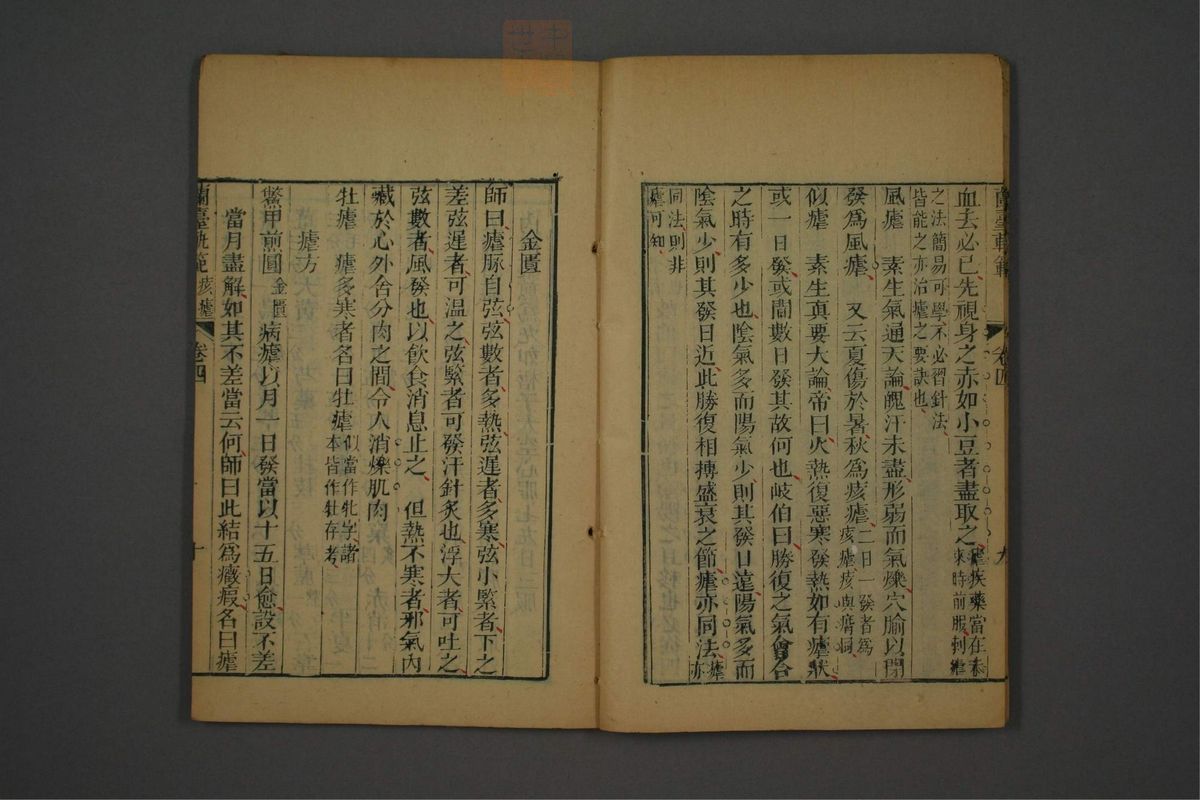 蘭臺軌範 卷四 九
血去必已先視身之赤如小豆者盡取之瘧疾藥當在未來時前服刺瘧
之法簡易可學不必習針法
皆能之亦治瘧之要訣也
風瘧 素生氣通天論魄汗未盡形弱而氣爍穴腧以閉
發爲風瘧 又云夏傷於暑秋爲痎瘧二日一發者爲痎瘧痎與痎同
似瘧 素至真要大論帝曰火熱復惡寒發熱如有瘧狀
或一日發或間數日發其故何也岐伯曰勝復之氣會合
之時有多少也陰氣多而陽氣少則其發日遠陽氣多而
陰氣少則其發日近此勝復相搏盛衰之節瘧亦同法瘧亦
同法則非
瘧可知
金匱
師曰瘧脉自弦弦數者多熱弦遲者多寒弦小緊者下之
差弦遲者可温之弦緊者可發汗針炙也浮大者可吐之
弦數者風發也以飲食消息止之 但熱不寒者邪氣內
藏於心外舍分肉之間令人消爍肌肉
牡瘧 瘧多寒者名曰牡瘧似當作牝字諸本皆作牡存考
瘧方
鱉甲煎圓金匱 病瘧以月一日發當以十五日愈設不差
當月盡解如其不差當云何師曰此結爲癥瘕名曰瘧
蘭臺軌範 痎瘧 卷四 十